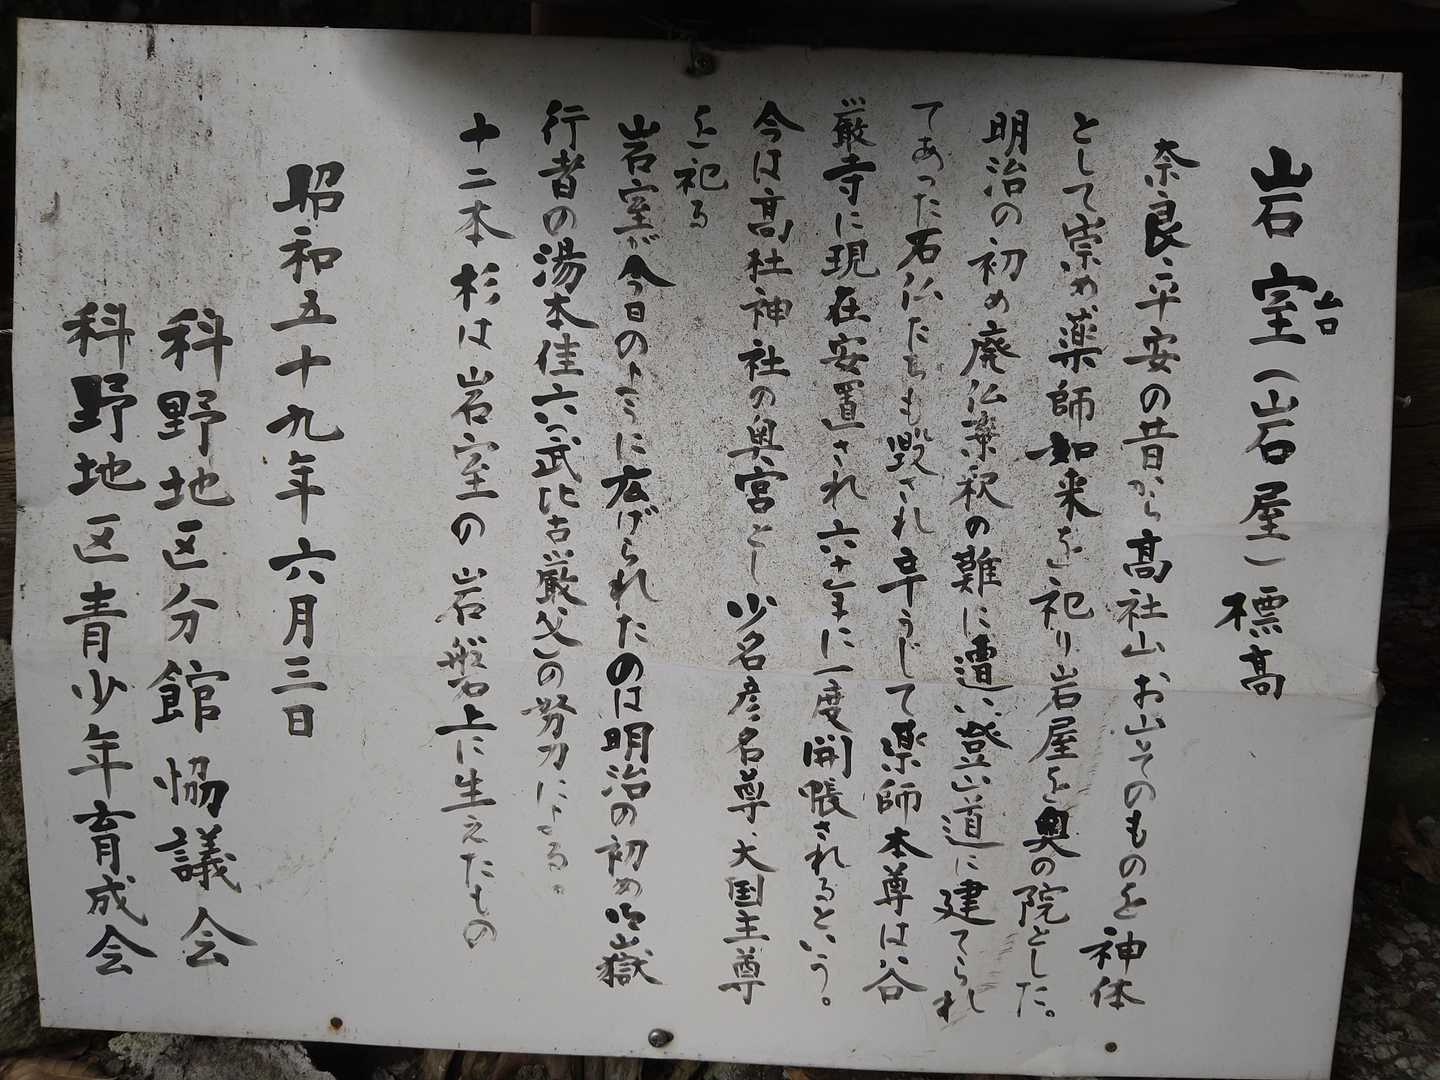 岩室(岩屋)標高
台
奈良、平安の昔から高社山お山そのものを神体
として崇め薬師如来を祀り岩屋を奥の院とした。
明治の初め廃仏棄釈の難に遭い登山道に建てられ
てあった石仏たちも毀され辛うじて薬師本尊は谷
厳寺に現在安置され六十年に一度開帳されるという。
今は高社神社の奥宮とし少名彦名尊、大国主尊
を祀る
岩室が今日のように広げられたのは明治の初め御嶽
行者の湯本佳六(武比古厳父)の努力による。
十二本杉は岩室の岩盤上に生えたもの
昭和五十九年六月三日
科野地区分館協議会
科野地区青少年育成会